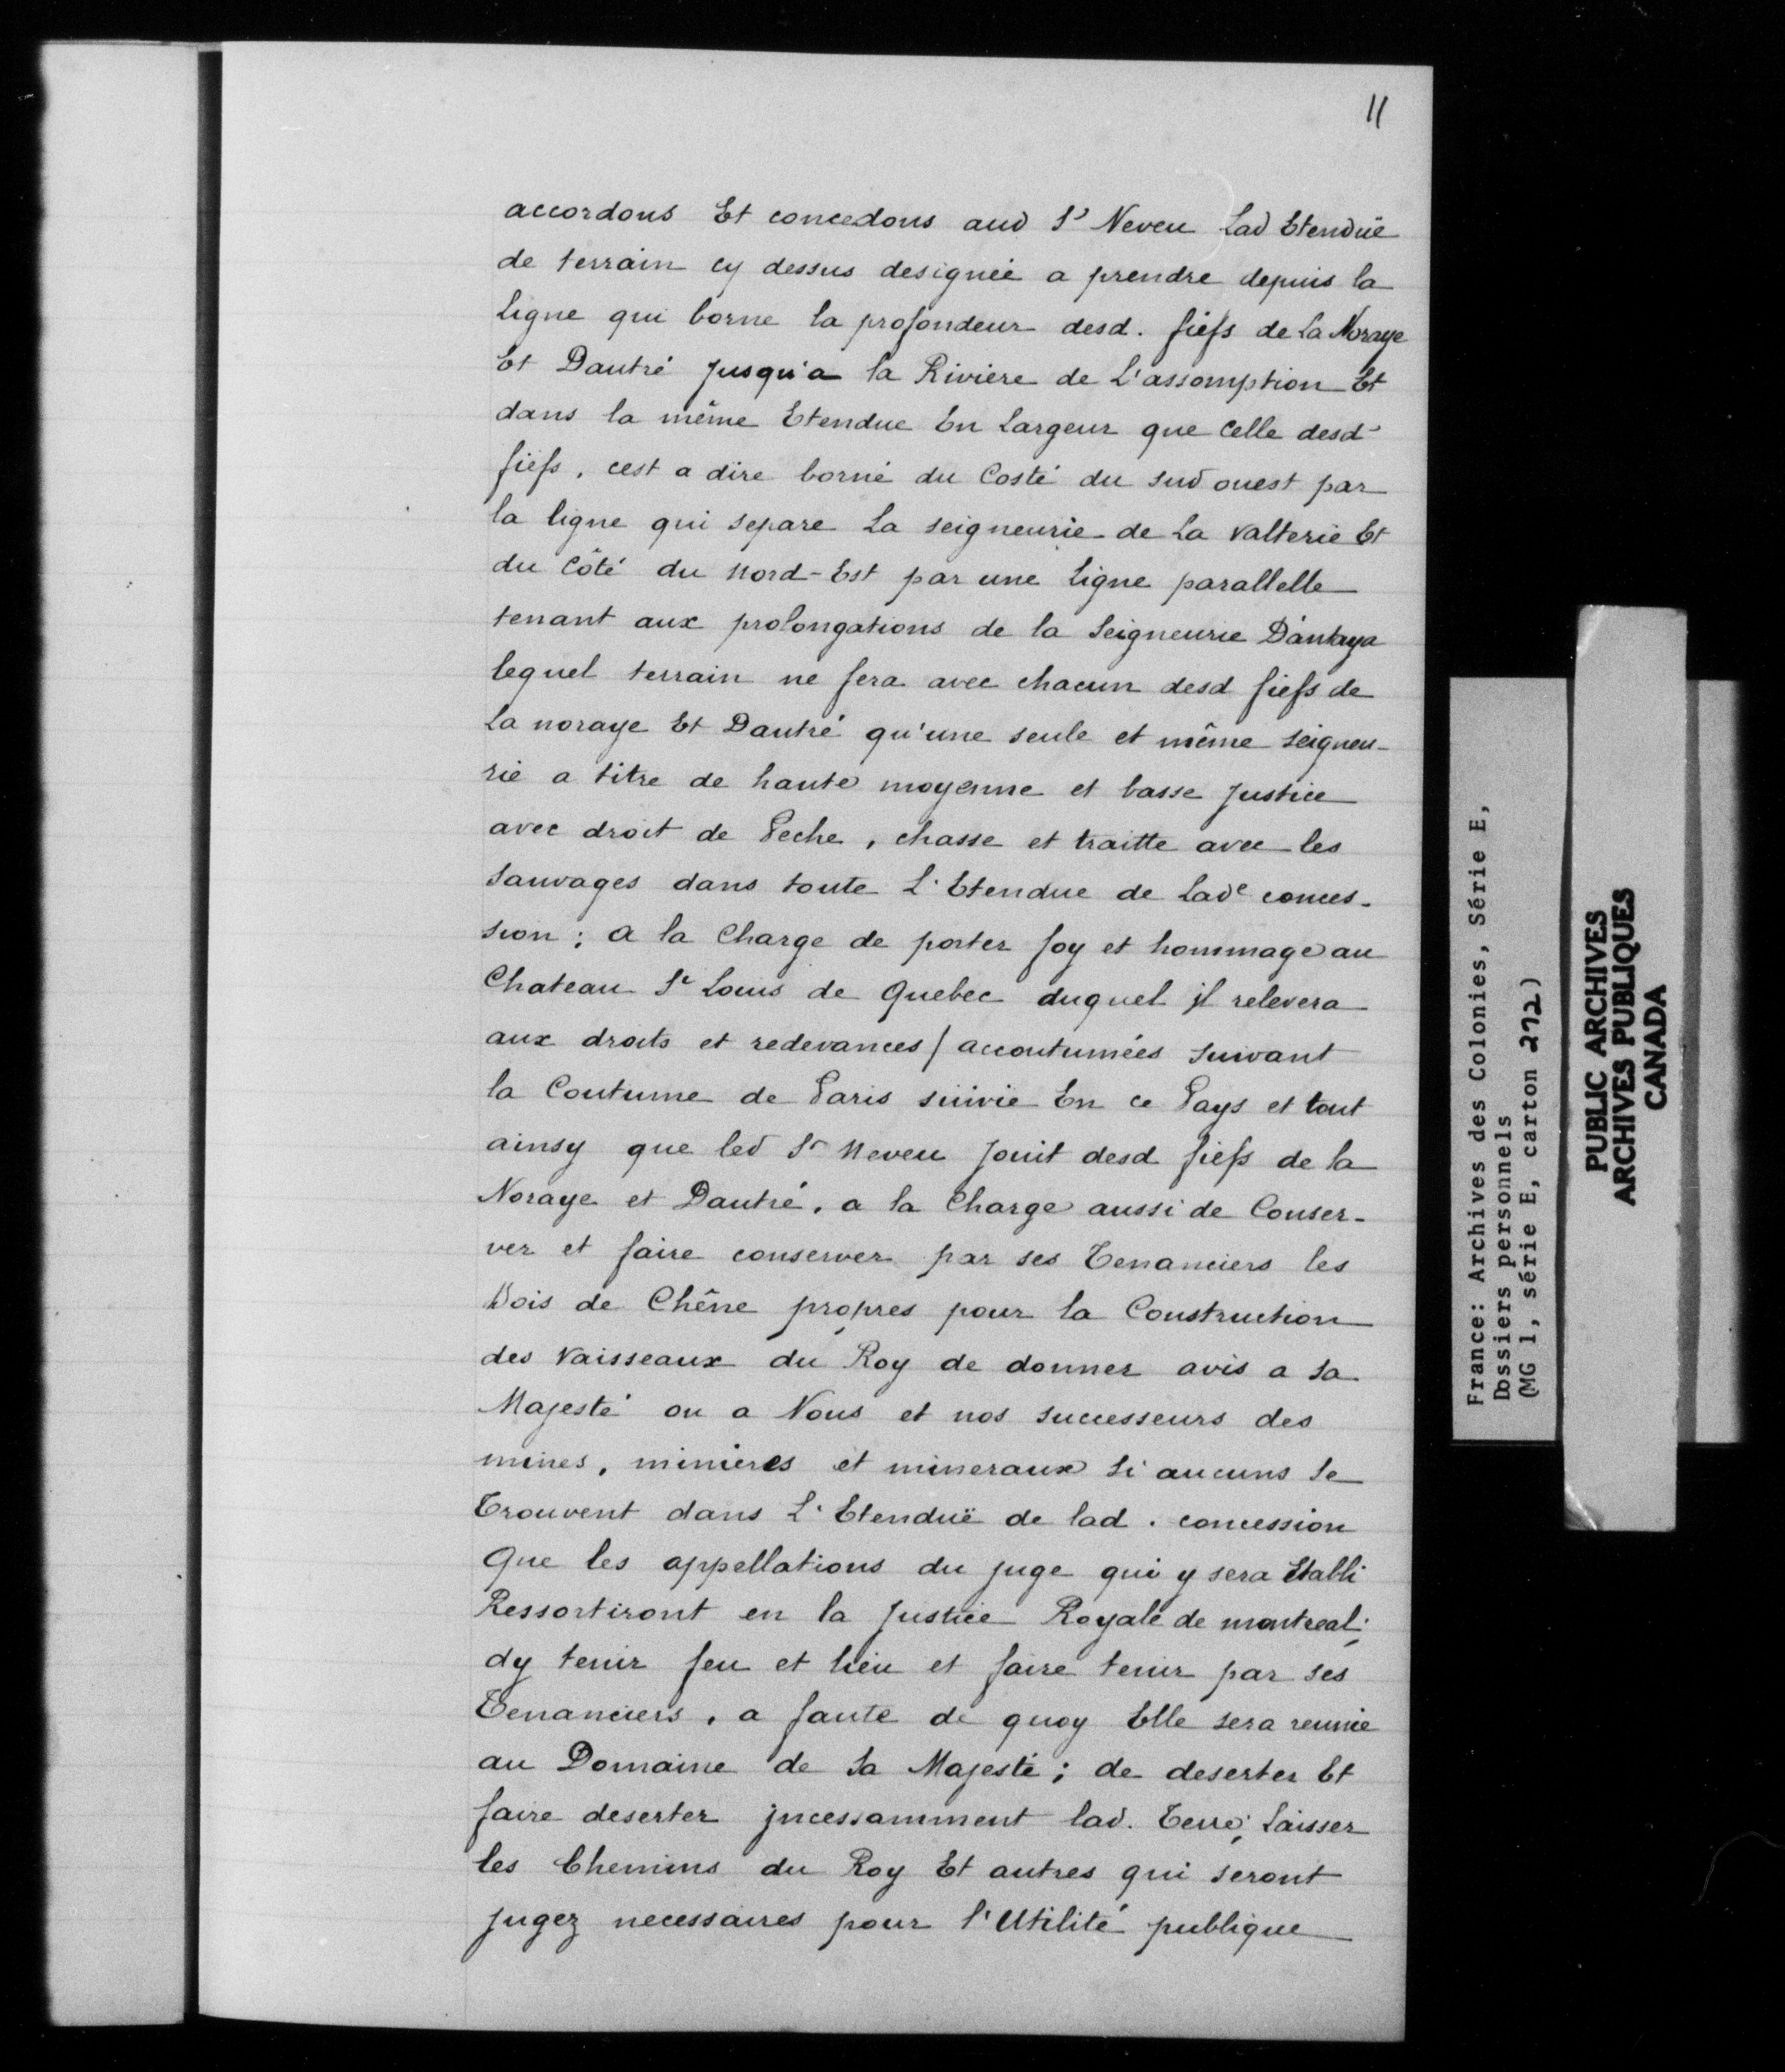 11
accordons Et concedons aud Sʳ Neveu Lad Etenduë
de terrain cy dessus designée a prendre depuis la
ligne qui borne la profondeur desd. fiefs de La Noraye
Et Dautré jusqu'a la Riviere de L'assomption Et
dans la même Etendue En Largeur que Celle desd
fiefs, cest a dire borné du Costé du sud ouest par
la ligne qui separe La seigneurie de La valterie Et
du Côté du Nord-Est par une ligne parallelle
tenant aux prolongations de la Seigneurie D'antaya
lequel terrain ne fera avec chacun desd fiefs de
La noraye Et Dautré qu'une seule et même seigneu-
rie a titre de haute moyenne et basse justice
avec droit de Peche, chasse et traitte avec les
Sauvages dans toute L'Etendue de Ladᵉ conces-
sion; a la Charge de porter foy et hommage au
Chateau Sᵗ Louis de Quebec duquel il relevera
aux droits et redevances / accoutumées suivant
la Coutume de Paris suivie En ce Pays et tout
ainsy que led Sʳ Neveu jouit desd fiefs de la
Noraye et Dautré, a la Charge aussi de Conser-
ver et faire conserver par ses Tenanciers les
Bois de Chêne propres pour la Construction
des Vaisseaux du Roy de donner avis a sa
Majesté ou a Nous et nos successeurs des
mines, minieres et mineraux si aucuns se
Trouvent dans L'Etenduë de lad. concession
Que les appellations du juge qui y sera Etabli
Ressortiront en la justice Royale de montreal;
dy tenir feu et lieu et faire tenir par ses
Tenanciers, a faute de quoy Elle sera reunie
au Domaine de Sa Majesté; de deserter Et
faire deserter incessamment lad. Terre; Laisser
les Chemins du Roy Et autres qui seront
jugez necessaires pour l'Utilité publique
France: Archives des Colonies, Série E,
Dossiers personnels
(MG 1, série E, carton 272)
PUBLIC ARCHIVES
ARCHIVES PUBLIQUES
CANADA